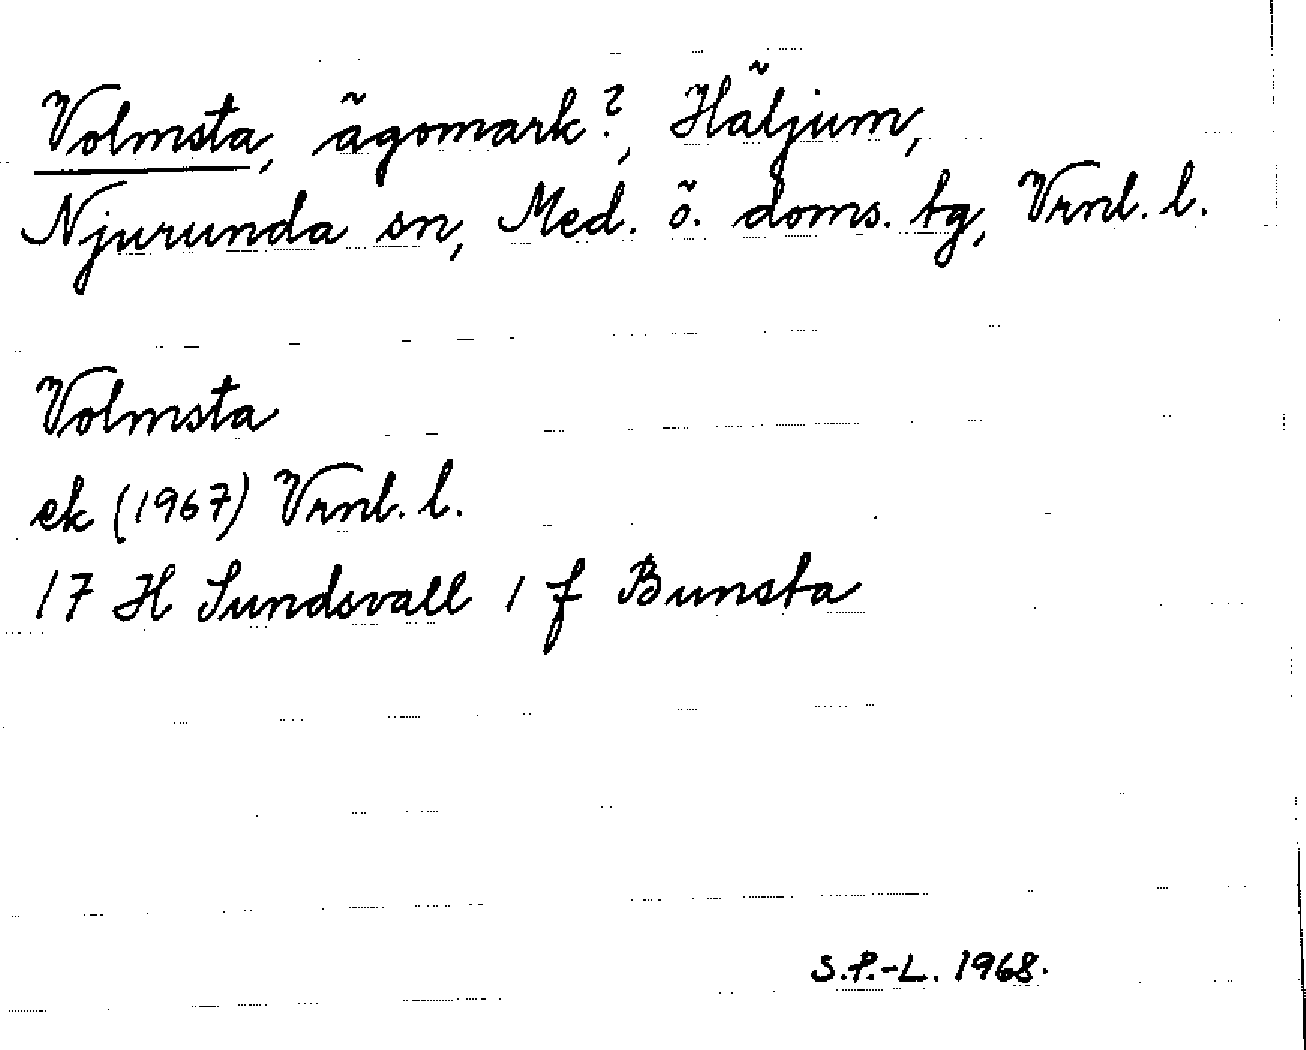 Volmsta, ägomark?, Häljum,
Njurunda sn, Med. ö. doms. tg, Vrnl. l.
Volmsta
ek (1967) Vrnl. l.
17 H Sundsvall 1 f Bunsta
S.P.-L. 1968.